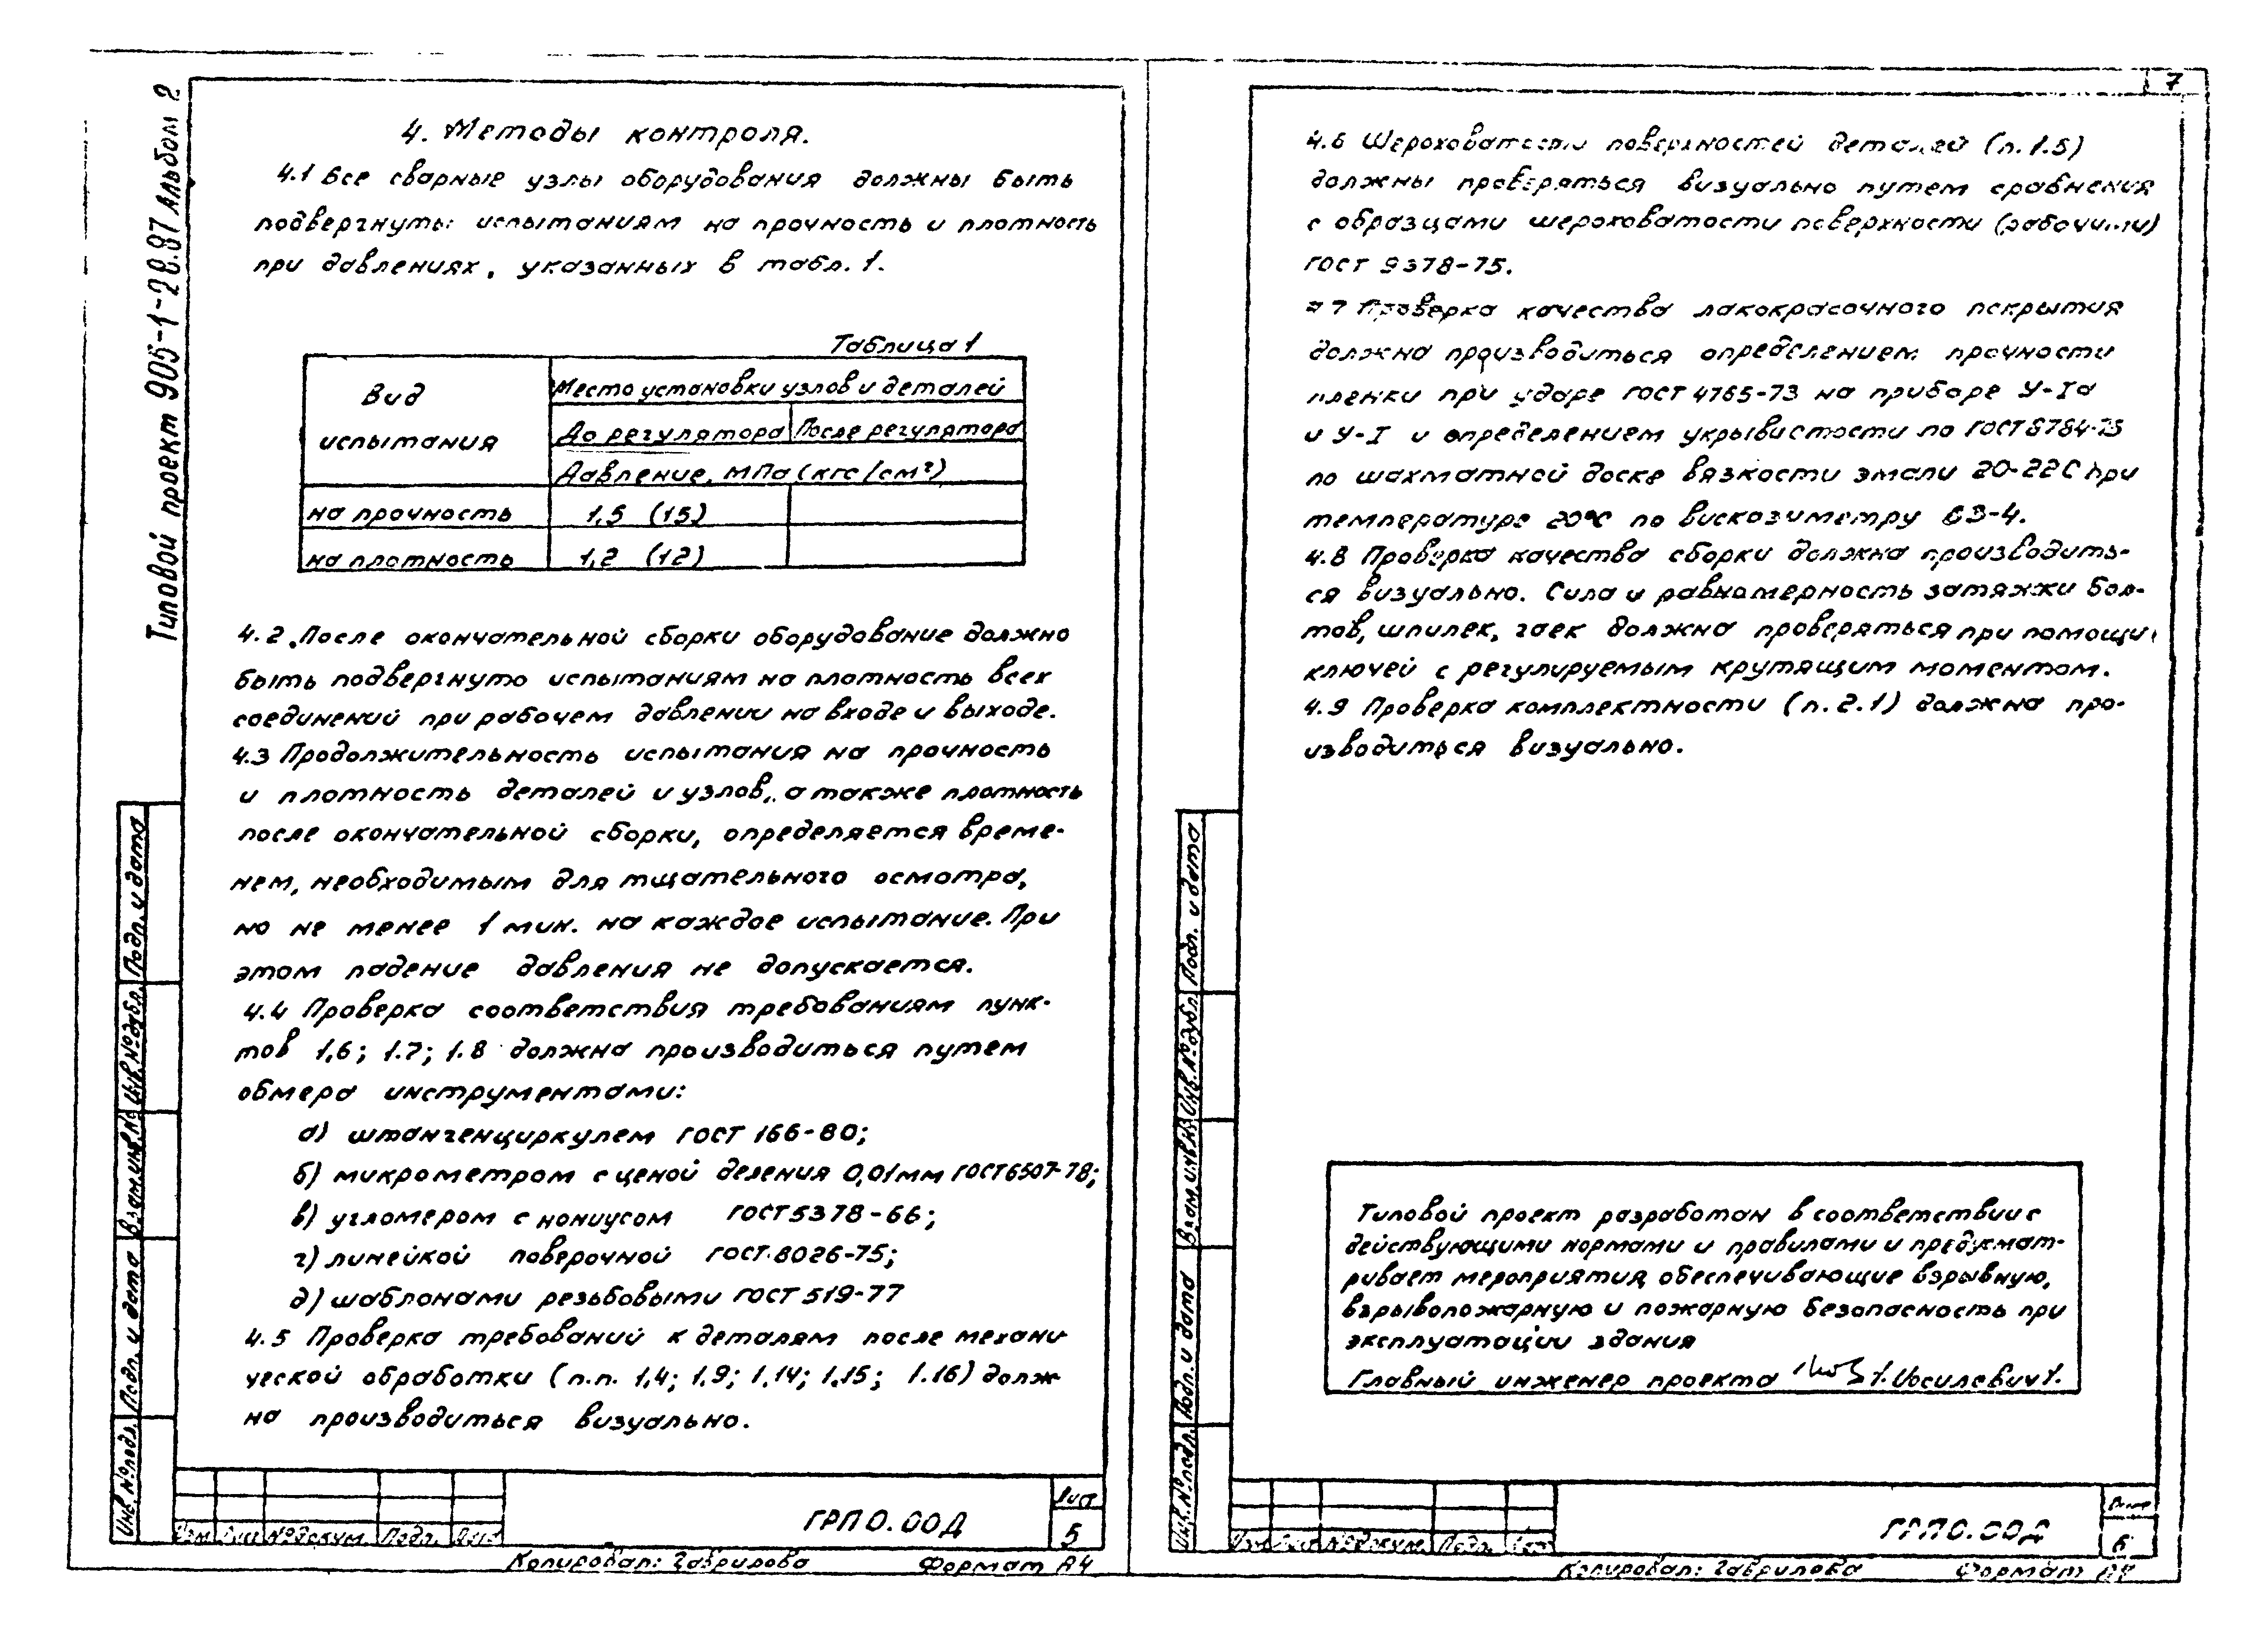 Типовой проект 905-1-28.87 Альбом 2
4. Методы контроля.
4.1 Все сварные узлы оборудования должны быть
подвергнуты испытаниям на прочность и плотность
при давлениях, указанных в табл. 1.
Таблица 1
Вид испытания
Место установки узлов и деталей
До регулятора После регулятора
Давление, МПа (кгс/см²)
на прочность 1,5 (15)
на плотность 1,2 (12)
4.2. После окончательной сборки оборудование должно
быть подвергнуто испытаниям на плотность всех
соединений при рабочем давлении на входе и выходе.
4.3 Продолжительность испытания на прочность
и плотность деталей и узлов, а также плотность
после окончательной сборки, определяется време-
нем, необходимым для тщательного осмотра,
но не менее 1 мин. на каждое испытание. При
этом падение давления не допускается.
4.4 Проверка соответствия требованиям пунк-
тов 1,6; 1.7; 1.8 должна производиться путем
обмера инструментами:
а) штангенциркулем ГОСТ 166-80;
б) микрометром с ценой деления 0,01мм ГОСТ 6507-78;
в) угломером с нониусом ГОСТ 5378-66;
г) линейкой поверочной ГОСТ 8026-75;
д) шаблонами резьбовыми ГОСТ 519-77
4.5 Проверка требований к деталям после механи-
ческой обработки (п.п. 1,4; 1,9; 1,14; 1,15; 1.16) долж-
на производиться визуально.
Инв. № подл. Подп. и дата Взам. инв. № Инв. № дубл. Подп. и дата
Изм Лист № докум. Подп. Дата
ГРП 0.00Д
Лист
5
Копировал: Гаврилова Формат А4
7
4.6 Шероховатости поверхностей деталей (п. 1.5)
должны проверяться визуально путем сравнения
с образцами шероховатости поверхности (рабочими)
ГОСТ 9378-75.
4.7 Проверка качества лакокрасочного покрытия
должна производиться определением прочности
пленки при ударе ГОСТ 4765-73 на приборе У-1а
и У-1 и определением укрывистости по ГОСТ 8784-75
по шахматной доске вязкости эмали 20-22С при
температуре 20°С по вискозиметру ВЗ-4.
4.8 Проверка качества сборки должна производить-
ся визуально. Сила и равномерность затяжки бол-
тов, шпилек, гаек должна проверяться при помощи
ключей с регулируемым крутящим моментом.
4.9 Проверка комплектности (п. 2.1) должна про-
изводиться визуально.
Типовой проект разработан в соответствии с
действующими нормами и правилами и предусмат-
ривает мероприятия, обеспечивающие взрывную,
взрывопожарную и пожарную безопасность при
эксплуатации здания
Главный инженер проекта /Иосилевич/.
Инв. № подл. Подп. и дата Взам. инв. № Инв. № дубл. Подп. и дата
Изм Лист № докум. Подп. Дата
ГРП 0.00Д
Лист
6
Копировал: Гаврилова Формат А4